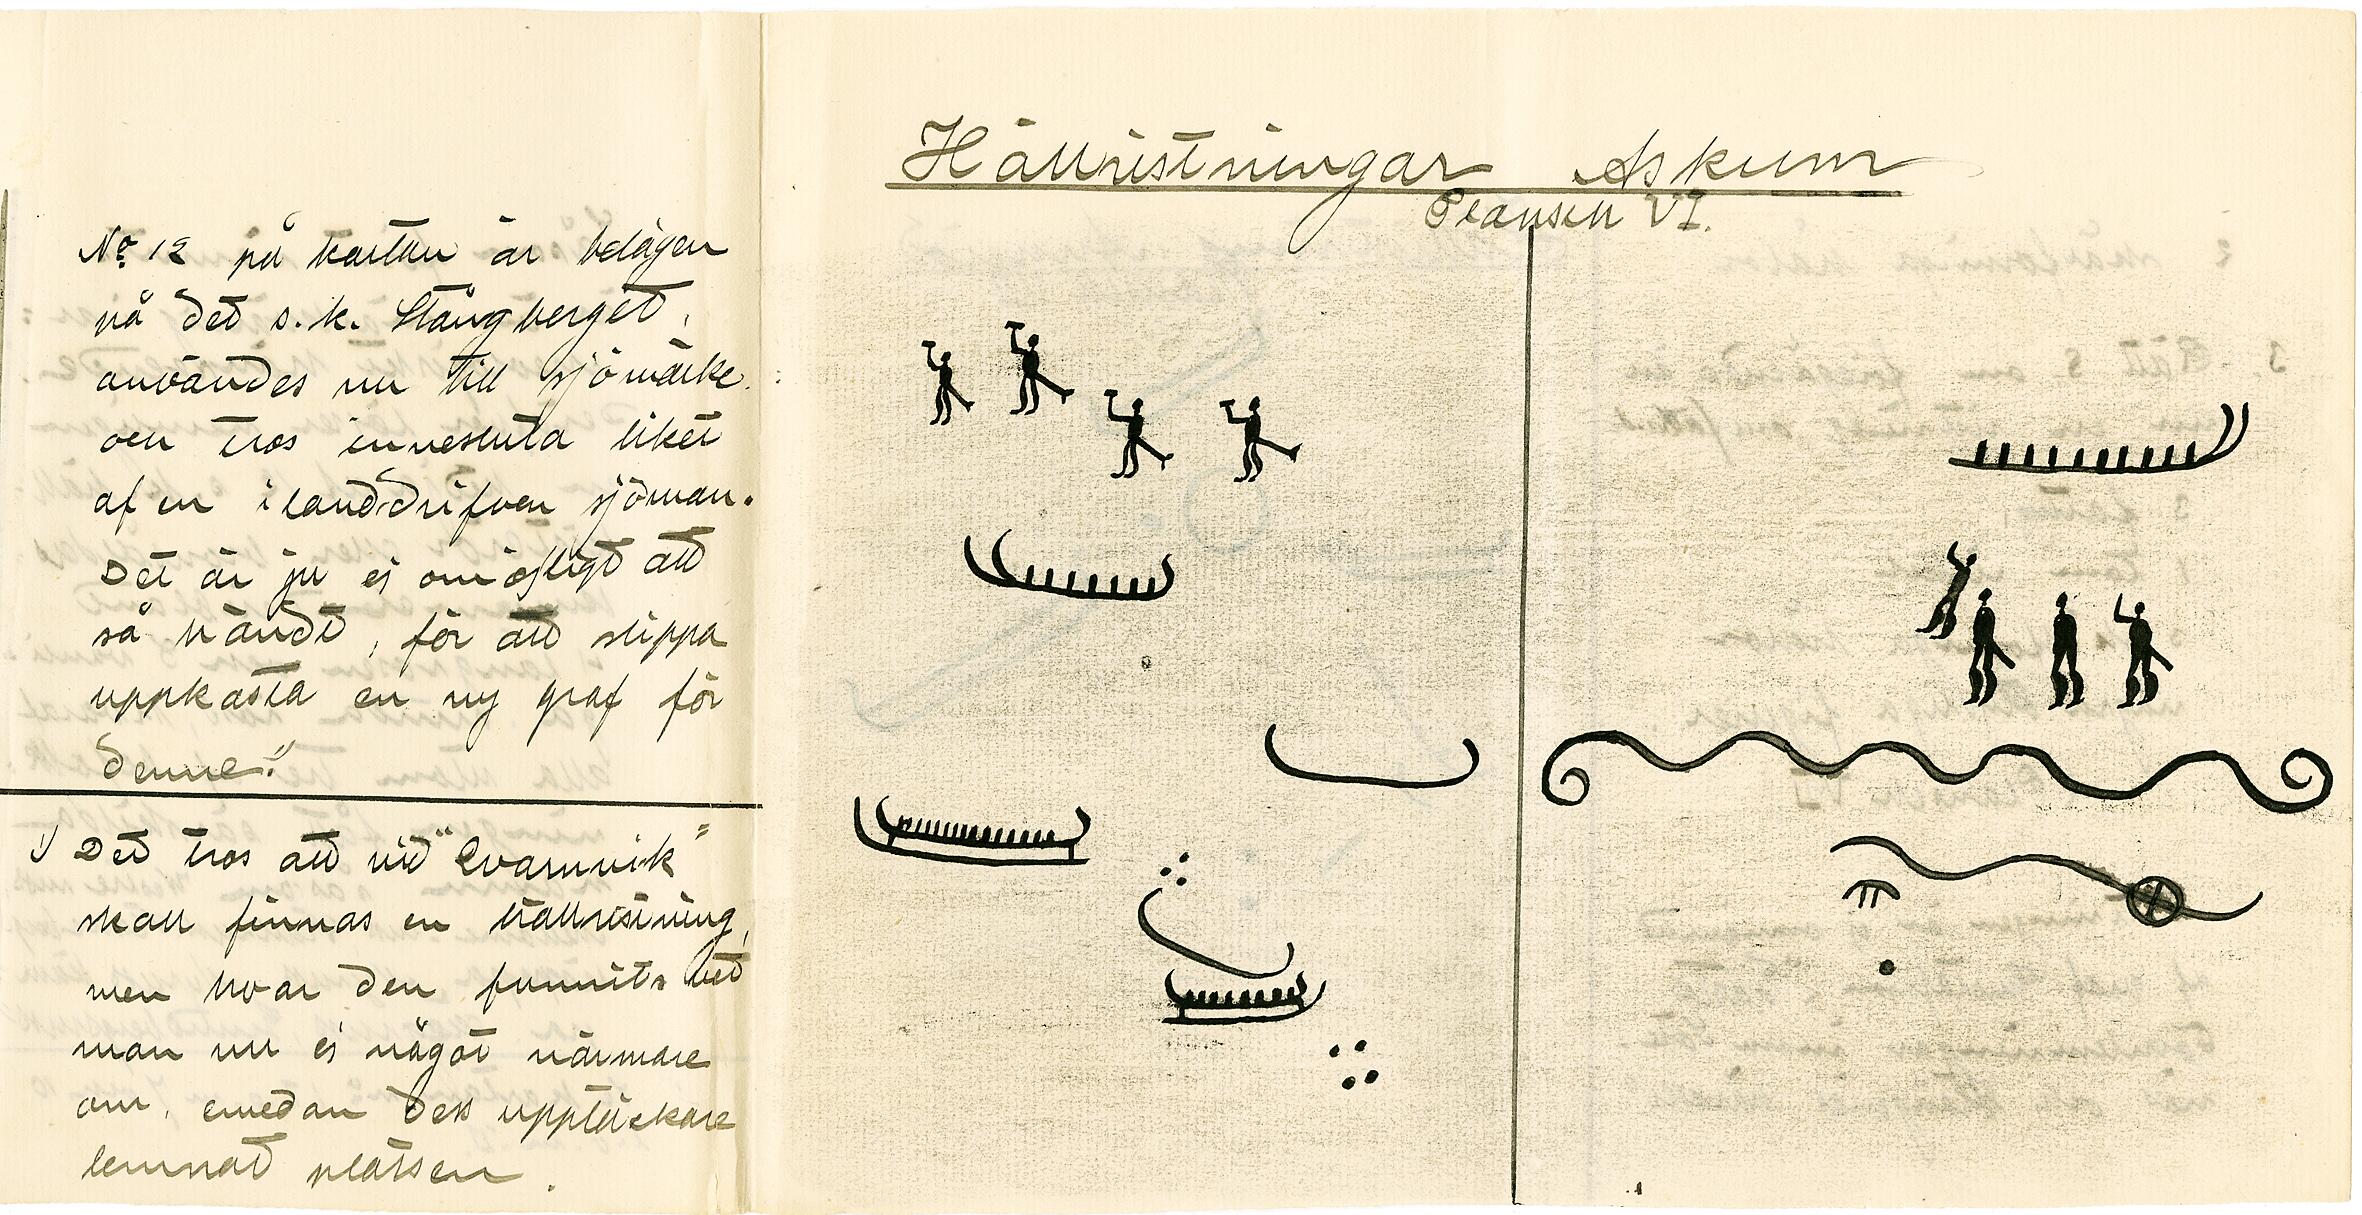 No. 12 på kartan är belägen
på det s.k. Stångberget,
användes nu till sjömärke.
och tros innesluta liket
af en i landdrifven sjöman.
Det är ju ej omöjligt att
så händt, för att slippa
uppkasta en ny graf för
denne."
Det tros att vid "Qvarnvik"
skall finnas en hällristning,
men hvar den funnits vet
man nu ej något närmare
om, emedan dess upptäckare
lemnat platsen.
Hällristningar Askum
Plansch VI.